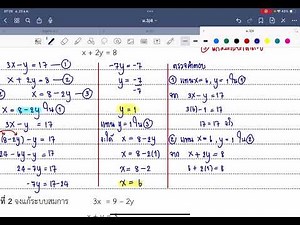 x + 2y = 8
3x - y = 17 ①
x + 2y = 8 ②
x = 8 - 2y
3x - y = 17
(8-2y) - y = 17
24 - 6y - y = 17
24 - 7y = 17
-7y = 17-24
-7y = -7
y = -7
-7
y = 1
x = 8 - 2y
x = 8 - 2(1)
x = 8 - 2
x = 6
ตรวจคำตอบ
① แทน x = 6, y = 1 ใน ①
จาก 3x - y = 17
3(6) - 1 = 17
17 = 17
② แทน x = 6, y = 1 ใน ②
จาก x + 2y = 8
6 + 2(1) = 8
ที่ 2 จงแก้ระบบสมการ 3x = 9 - 2y